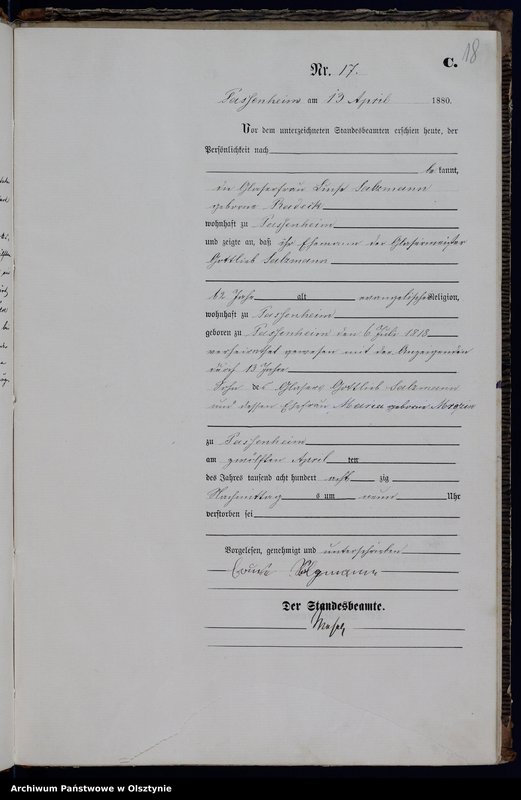 18
C.
Nr. 17.
Passenheim am 13 April 1880.
Vor dem unterzeichneten Standesbeamten erschien heute, der
Persönlichkeit nach
bekannt,
die Glaserfrau Luise Salzmann
geborene Radeck
wohnhaft zu Passenheim
und zeigte an, daß ihr Ehemann der Glasermeister
Gottlieb Salzmann
62 Jahr alt evangelischer Religion,
wohnhaft zu Passenheim
geboren zu Passenheim den 6 Juli 1818
verheirathet gewesen mit der Anzeigenden
durch 13 Jahre
Sohn des Glasers Gottlieb Salzmann
und dessen Ehefrau Maria geborene
zu Passenheim
am zwölften April ten
des Jahres tausend acht hundert acht zig
Nachmittag s um neun Uhr
verstorben sei
Vorgelesen, genehmigt und unterschrieben
Der Standesbeamte.
Archiwum Państwowe w Olsztynie